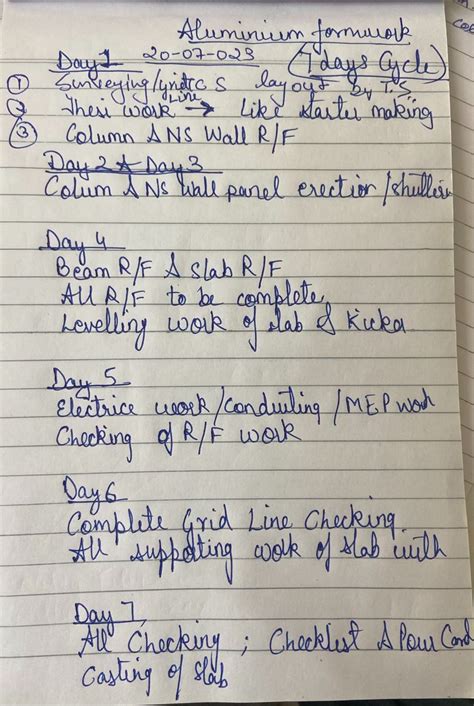 Aluminium formwork
Day 1 20-07-023 (7 days Cycle)
① Surveying/grid Line layout by T.S
② Thesi work → Like starter making
③ Column & NS Wall R/F
Day 2 & Day 3
Colum & NS wall panel erection /
Day 4
Beam R/F & Slab R/F
All R/F to be complete
Levelling work of slab & Kicka
Day 5
Electrice work/Conduiting/MEP work
Checking of R/F work
Day 6
Complete Grid Line Checking
All supporting work of slab with
Day 7
All Checking ; Checklist & Pour Card
Casting of slab